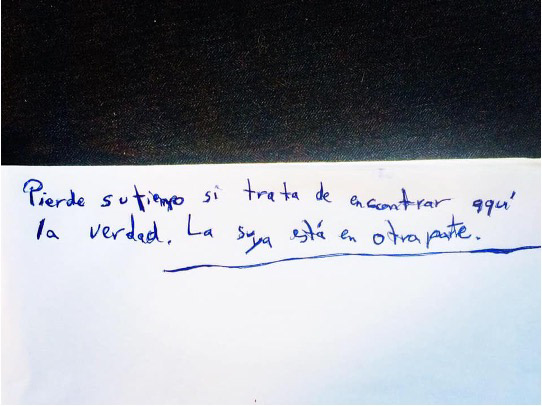 Pierde su tiempo si trata de encontrar aquí
la verdad. La suya está en otra parte.